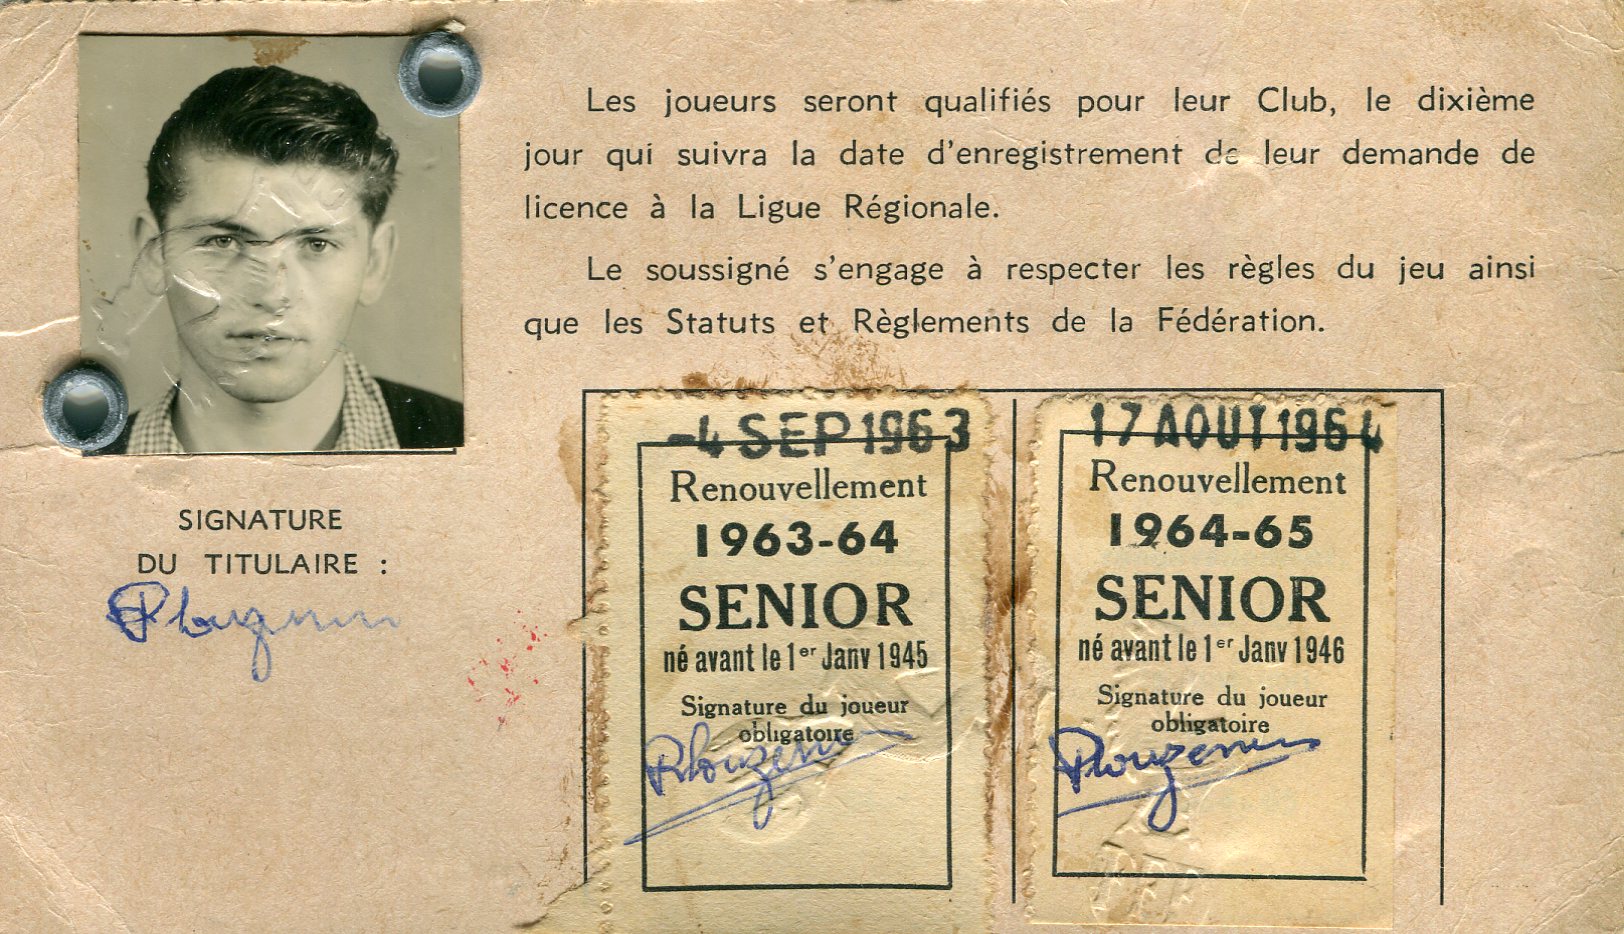 Les joueurs seront qualifiés pour leur Club, le dixième
jour qui suivra la date d'enregistrement de leur demande de
licence à la Ligue Régionale.
Le soussigné s'engage à respecter les règles du jeu ainsi
que les Statuts et Règlements de la Fédération.
SIGNATURE
DU TITULAIRE :
-4 SEP 1963
Renouvellement
1963-64
SENIOR
né avant le 1er Janv 1945
Signature du joueur
obligatoire
17 AOUT 1964
Renouvellement
1964-65
SENIOR
né avant le 1er Janv 1946
Signature du joueur
obligatoire